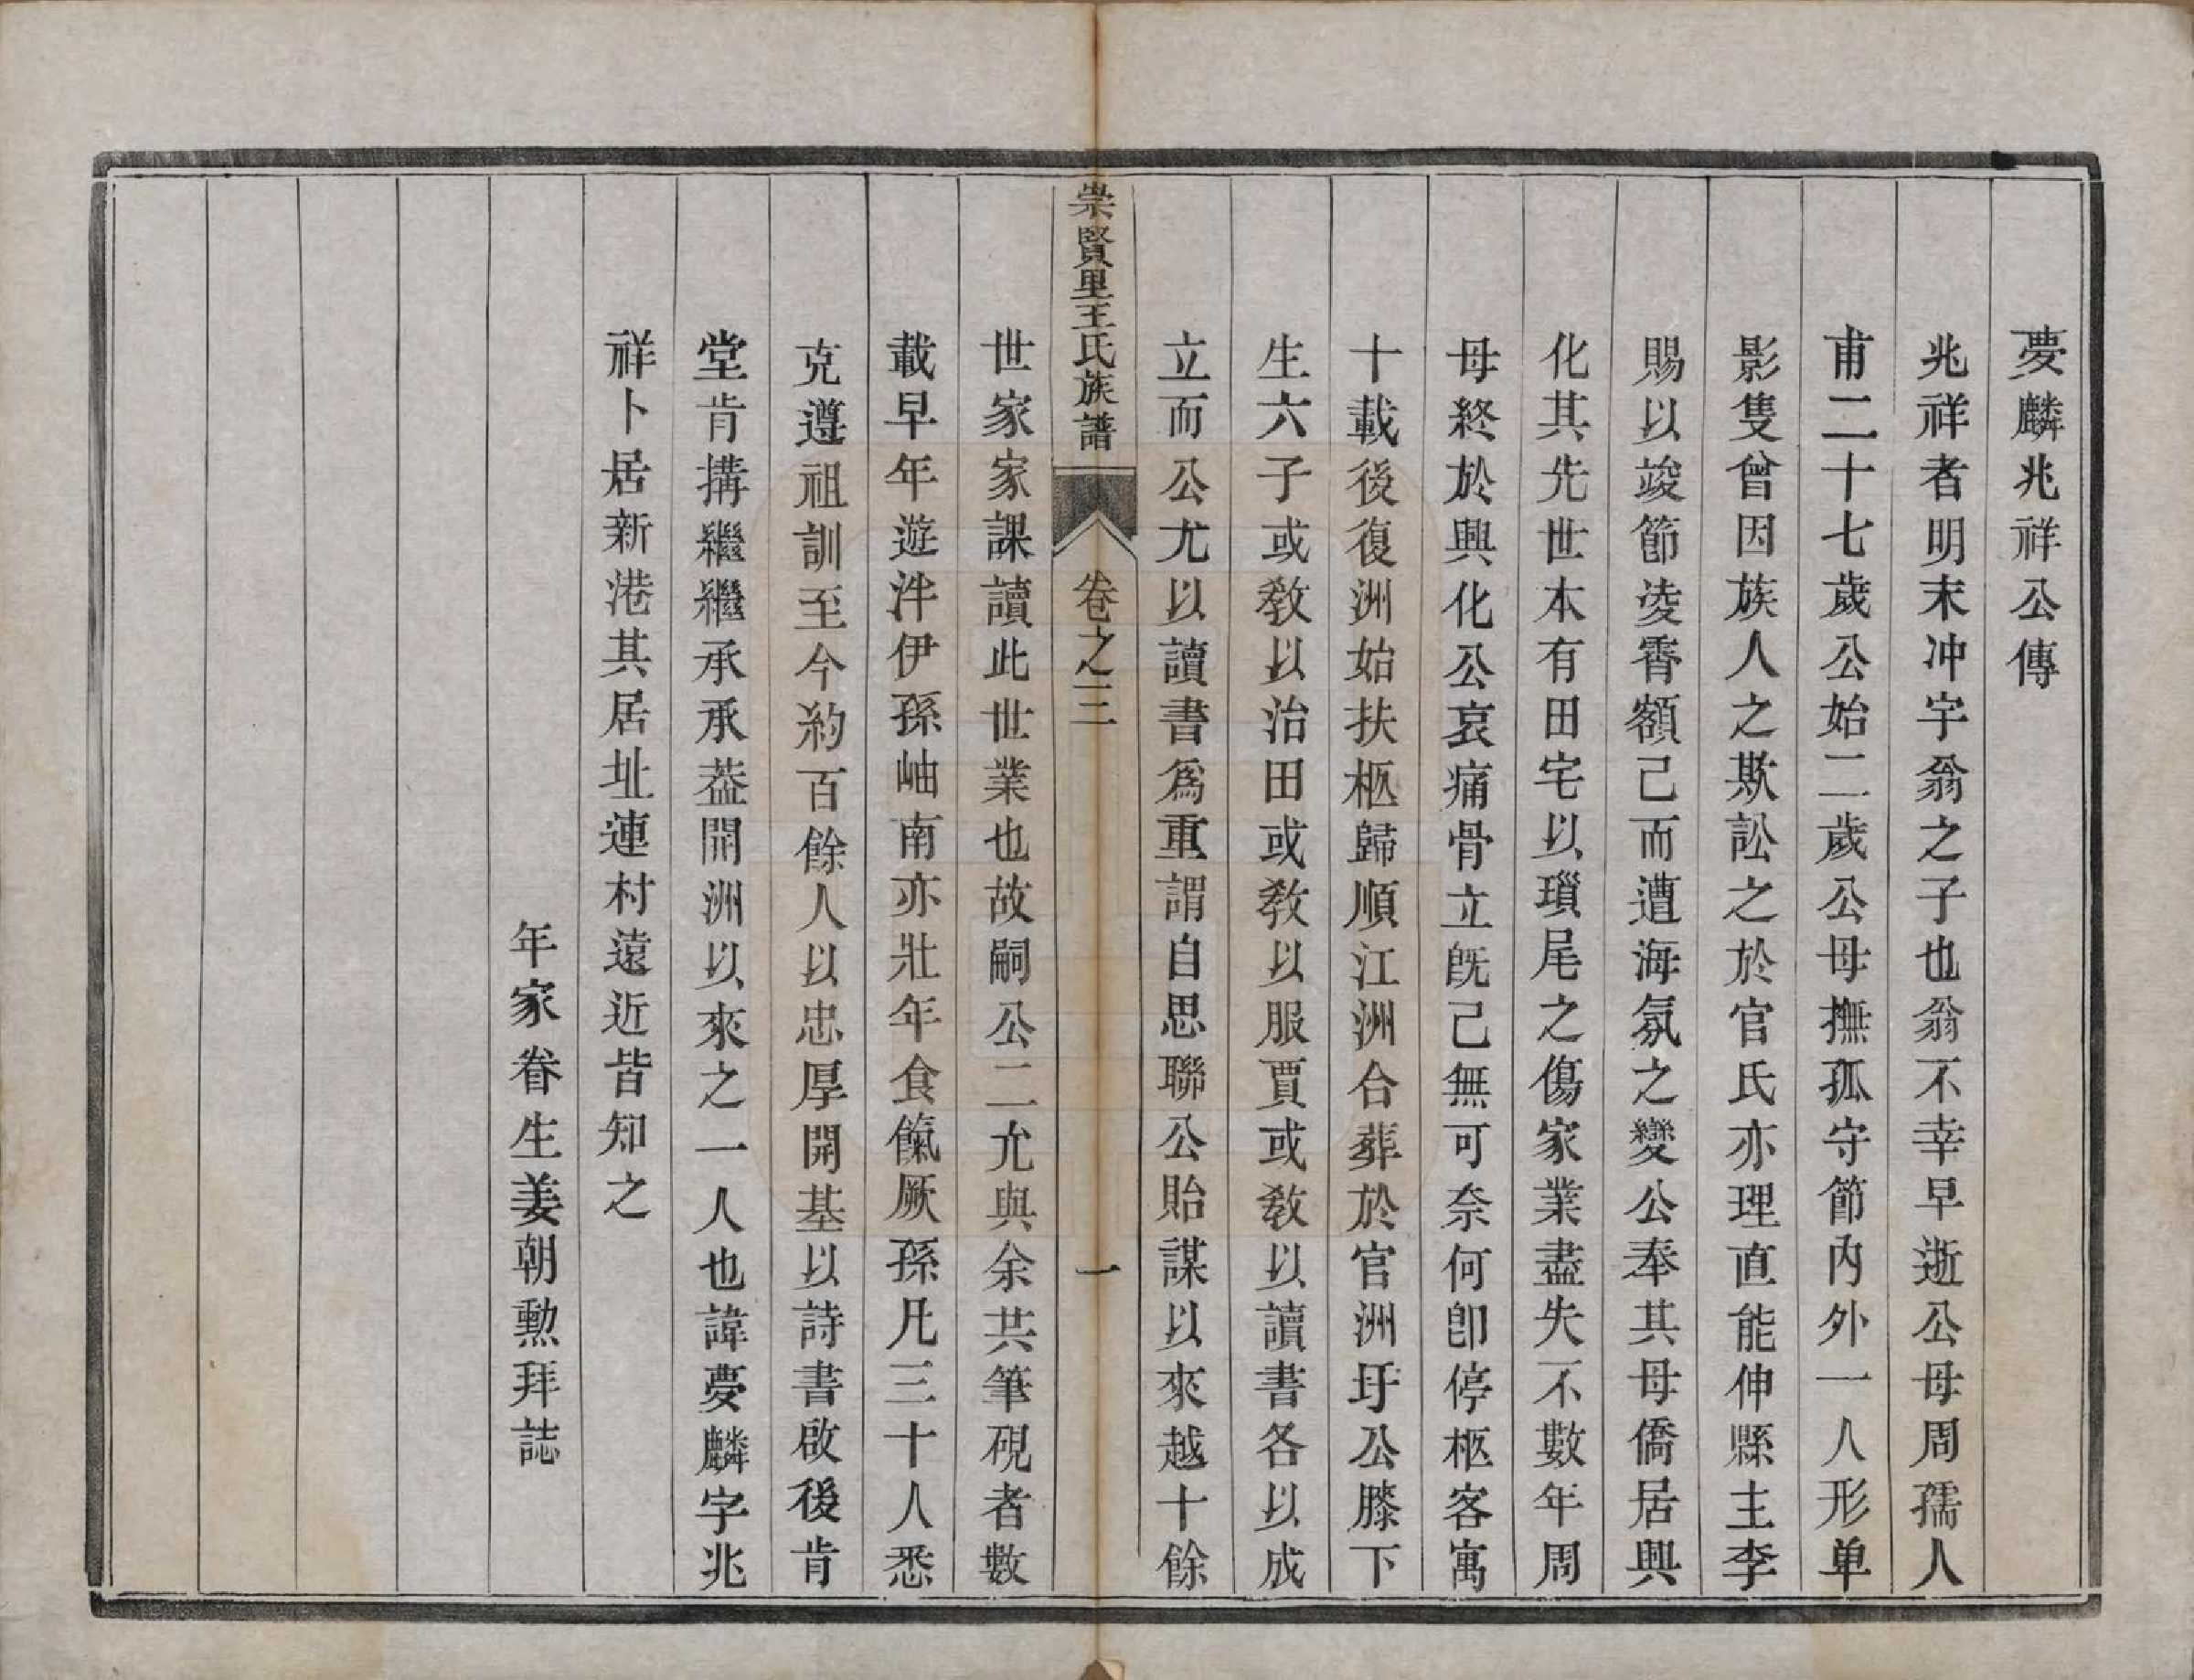 夢麟兆祥公傳
兆祥者明末冲宇翁之子也翁不幸早逝公母周孺人
甫二十七歲公始二歲公母撫孤守節內外一人形单
影隻曾因族人之欺訟之於官氏亦理直能伸縣主李
賜以竣節凌霄額己而遭海氛之變公奉其母僑居興
化其先世本有田宅以瑣尾之傷家業盡失不數年周
母終於興化公哀痛骨立旣己無可奈何卽停柩客寓
十載後復洲始扶柩歸順江洲合葬於官洲圩公膝下
生六子或敎以治田或敎以服賈或敎以讀書各以成
立而公尤以讀書爲重謂自思聯公貽謀以來越十餘
崇賢里王氏族譜
卷之三
一
世家家課讀此世業也故嗣公二尤與余共筆硯者數
載早年遊泮伊孫岫南亦壯年食餼厥孫凡三十人悉
克遵祖訓至今約百餘人以忠厚開基以詩書啟後肯
堂肯搆繼繼承承葢開洲以來之一人也諱夢麟字兆
祥卜居新港其居址連村遠近皆知之
年家眷生姜朝勲拜誌